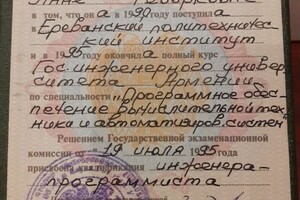 том, что он а в 1990 поступил а
в Ереванский политехничес-
кий институт
и в 1995 окончил а полный курс
Гос. инженерного универ-
ситета Армении
по специальности "Программное обес-
печение вычислительной тех-
ники и автоматизиров. систем"
Решением Государственной экзаменационной
комиссии от 19 июля 1995 года
присвоена квалификация инженера-
программиста